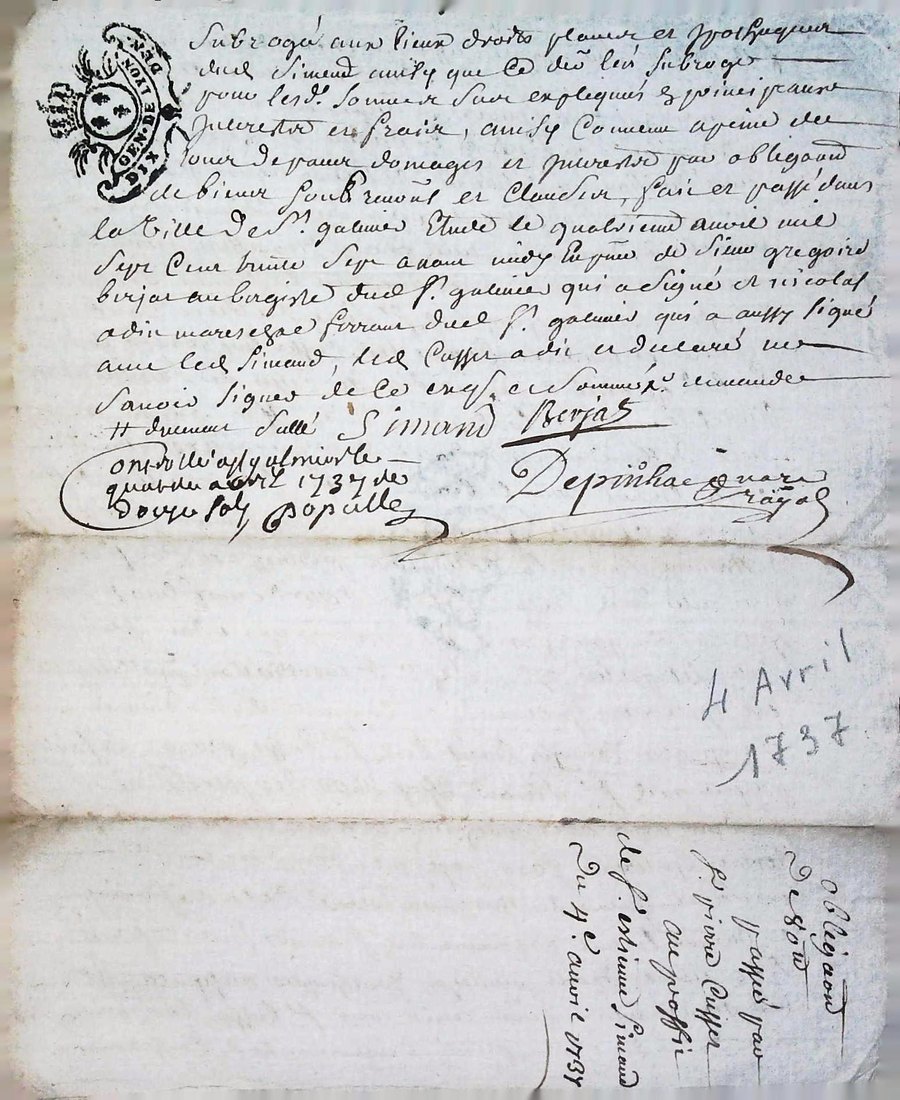 GEN. DE LYON
DIX DEN.
Subrogé aux lieux droits places et ypotheques
dud Simand ainsy que ce der luy subroge
pour lesd. sommes sus expliqués en principaux
Interests et frais, ainsy convenu a peine de
tous depans domages et Interests par obligaon
de biens et clauses, fait et passé dans
la ville de St. galmier Etude le quatrieme avril mil
sept cent trente sept avant midy En pnce de sieur gregoire
berjat aubergiste dud St. galmier qui a signé et nicolas
adin mareschal ferrant dud St. galmier qui a aussy signé
avec led Simand, led Cusset a dit et declaré ne
savoir signer de ce enqs. et sommé demandee
# duement sellé Simand Berjat
controllé a st galmier le
quatre avril 1737 de
douze sols Populle
Depinhac
4 Avril
1737
obligaon
De 80
passé par
Sr. pierre Cusset
au proffit
de Sr. estienne Simand
Du 4e. avril 1737